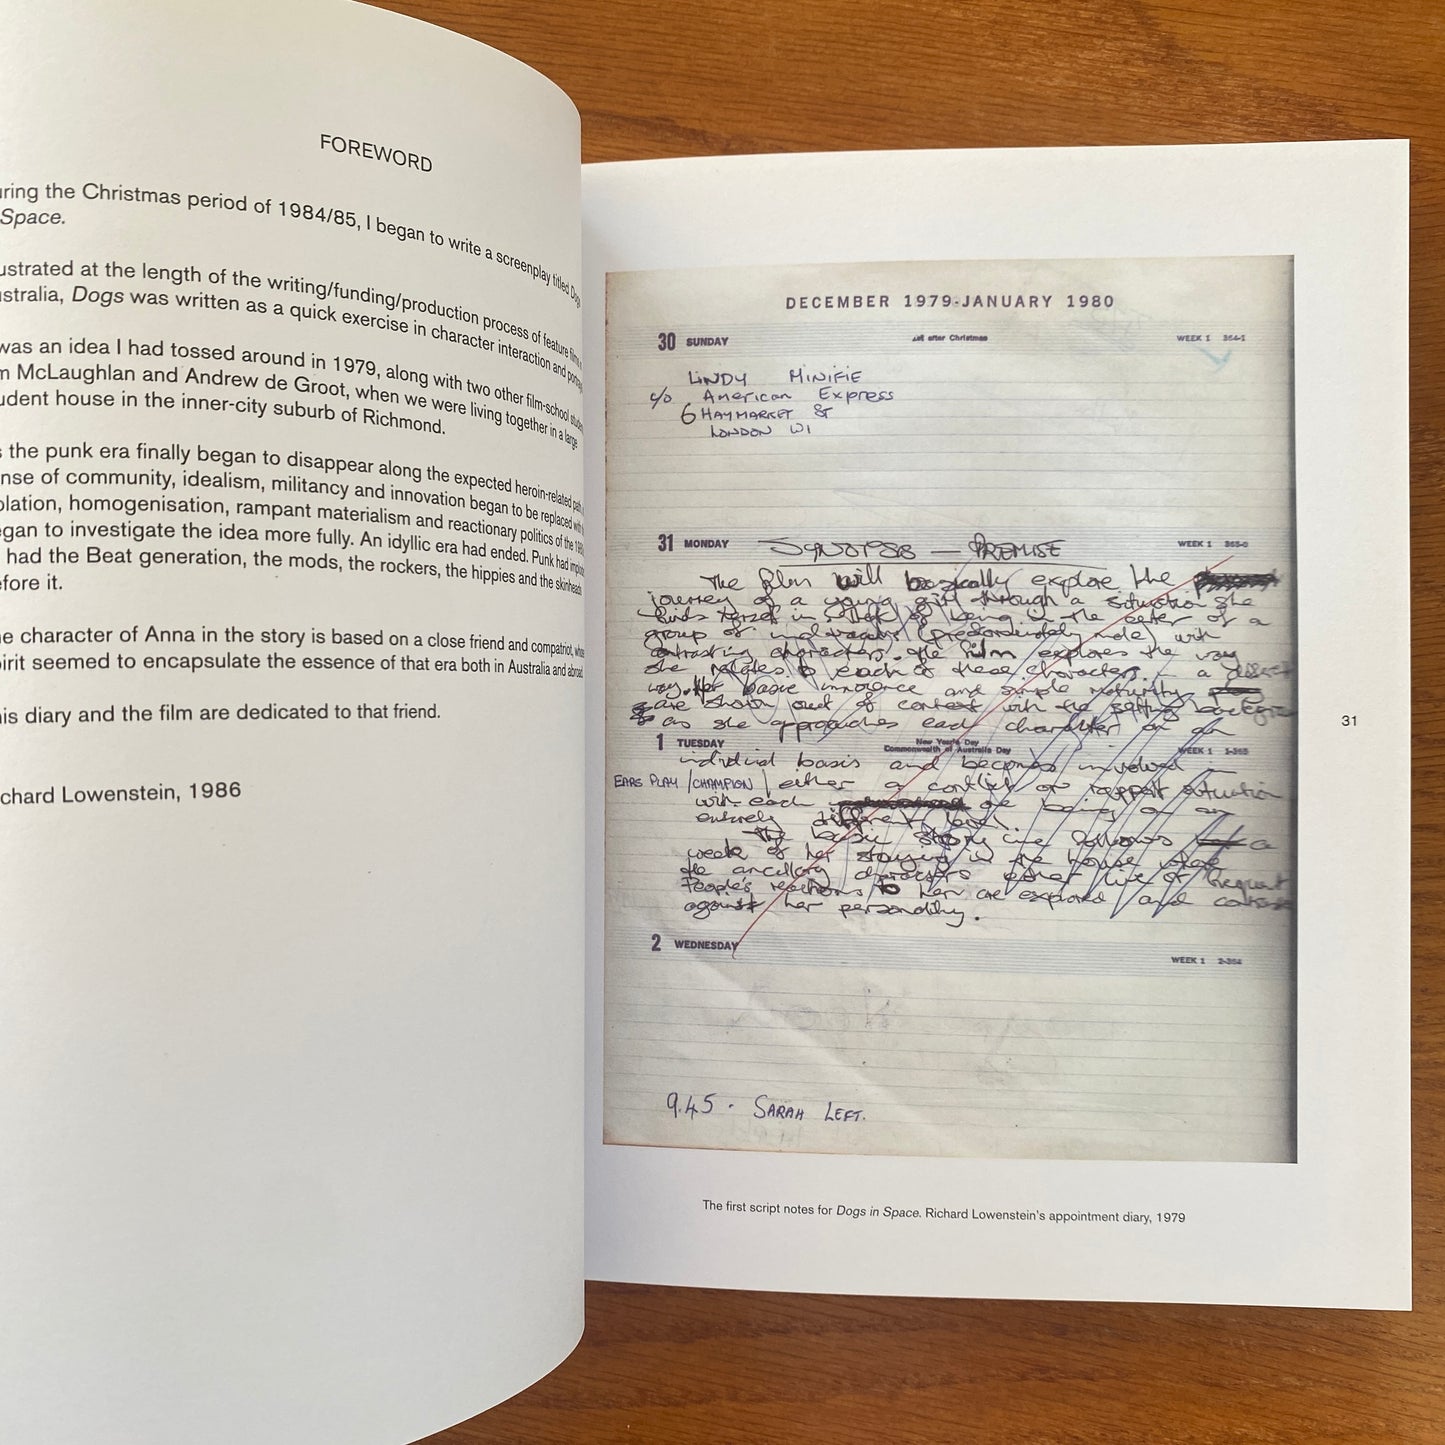 FOREWORD
ring the Christmas period of 1984/85, I began to write a screenplay titled Dogs
Space.
ustrated at the length of the writing/funding/production process of feature films
ustralia, Dogs was written as a quick exercise in character interaction and
was an idea I had tossed around in 1979, along with two other film-school
m McLaughlan and Andrew de Groot, when we were living together in a large
udent house in the inner-city suburb of Richmond.
s the punk era finally began to disappear along the expected heroin-related
nse of community, idealism, militancy and innovation began to be replaced with
olation, homogenisation, rampant materialism and reactionary politics of the
egan to investigate the idea more fully. An idyllic era had ended. Punk had
had the Beat generation, the mods, the rockers, the hippies and the skinheads
efore it.
he character of Anna in the story is based on a close friend and compatriot, whose
pirit seemed to encapsulate the essence of that era both in Australia and abroad.
his diary and the film are dedicated to that friend.
chard Lowenstein, 1986
DECEMBER 1979-JANUARY 1980
30 SUNDAY after Christmas WEEK 1 364-1
LINDY MINIFIE
c/o American Express
6 HAYMARKET St
LONDON W1
31 MONDAY SYNOPSIS — PREMISE WEEK 1 365-0
The film will basically explore the
journey of a young girl through a situation she
finds herself in of being in the center of a
group of (predominately male) with
contrasting characters. The film explores the way
she relates to each of these characters in a different
way. Her basic innocence and simple maturity
are shown out of context with the setting
as she approaches each character on an
1 TUESDAY New Year's Day Commonwealth of Australia Day WEEK 1 1-365
individual basis and becomes involved in
EARS PLAY / CHAMPION / either a conflict or rapport situation
with each one being on an
entirely different level.
The basic story line follows a
week of her staying in the house where
the ancillary characters either live or frequent
People's reactions to her are explored and
against her personality.
2 WEDNESDAY WEEK 1 2-364
9.45 . SARAH LEFT.
31
The first script notes for Dogs in Space. Richard Lowenstein's appointment diary, 1979